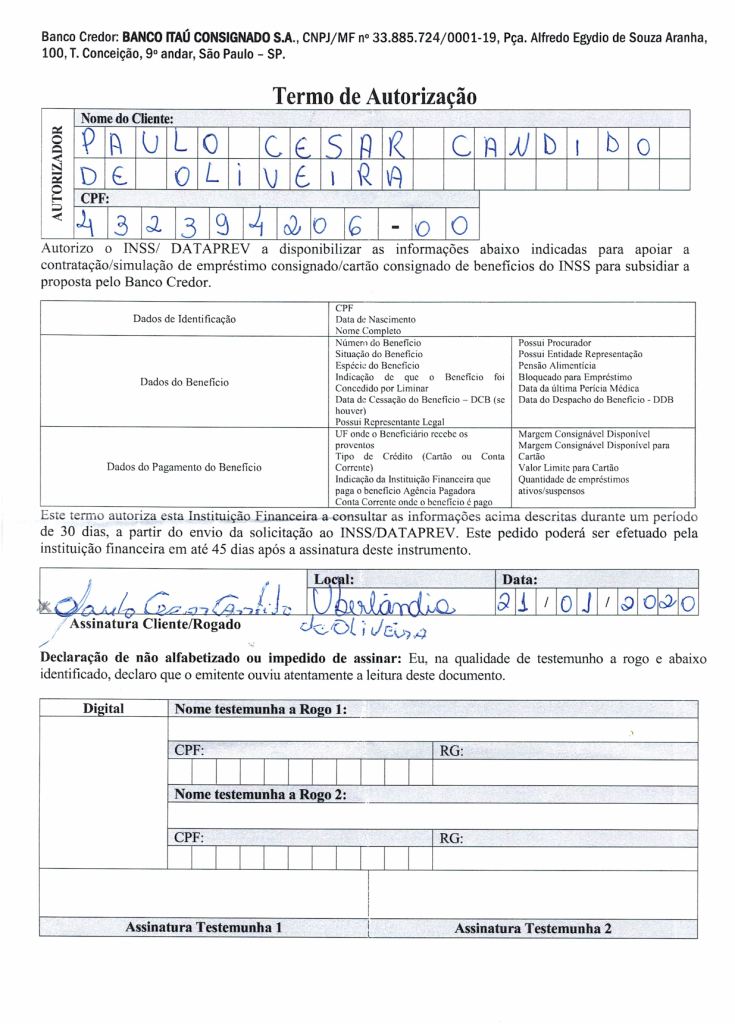 Banco Credor: BANCO ITAÚ CONSIGNADO S.A., CNPJ/MF nº 33.885.724/0001-19, Pça. Alfredo Egydio de Souza Aranha,
100, T. Conceição, 9º andar, São Paulo – SP.
Termo de Autorização
AUTORIZADOR
Nome do Cliente:
PAULO CESAR CANDIDO
DE OLIVEIRA
CPF:
432394206-00
Autorizo o INSS/ DATAPREV a disponibilizar as informações abaixo indicadas para apoiar a
contratação/simulação de empréstimo consignado/cartão consignado de benefícios do INSS para subsidiar a
proposta pelo Banco Credor.
Dados de Identificação
CPF
Data de Nascimento
Nome Completo
Dados do Benefício
Número do Benefício
Situação do Benefício
Espécie do Benefício
Indicação de que o Benefício foi
Concedido por Liminar
Data de Cessação do Benefício – DCB (se
houver)
Possui Representante Legal
Possui Procurador
Possui Entidade Representação
Pensão Alimentícia
Bloqueado para Empréstimo
Data da última Perícia Médica
Data do Despacho do Benefício - DDB
Dados do Pagamento do Benefício
UF onde o Beneficiário recebe os
proventos
Tipo de Crédito (Cartão ou Conta
Corrente)
Indicação da Instituição Financeira que
paga o benefício Agência Pagadora
Conta Corrente onde o benefício é pago
Margem Consignável Disponível
Margem Consignável Disponível para
Cartão
Valor Limite para Cartão
Quantidade de empréstimos
ativos/suspensos
Este termo autoriza esta Instituição Financeira a consultar as informações acima descritas durante um período
de 30 dias, a partir do envio da solicitação ao INSS/DATAPREV. Este pedido poderá ser efetuado pela
instituição financeira em até 45 dias após a assinatura deste instrumento.
Local: Data:
x Paulo Cesar Candido Uberlândia 21/01/2020
Assinatura Cliente/Rogado de OLiveira
Declaração de não alfabetizado ou impedido de assinar: Eu, na qualidade de testemunho a rogo e abaixo
identificado, declaro que o emitente ouviu atentamente a leitura deste documento.
Digital
Nome testemunha a Rogo 1:
CPF: RG:
Nome testemunha a Rogo 2:
CPF: RG:
Assinatura Testemunha 1 Assinatura Testemunha 2